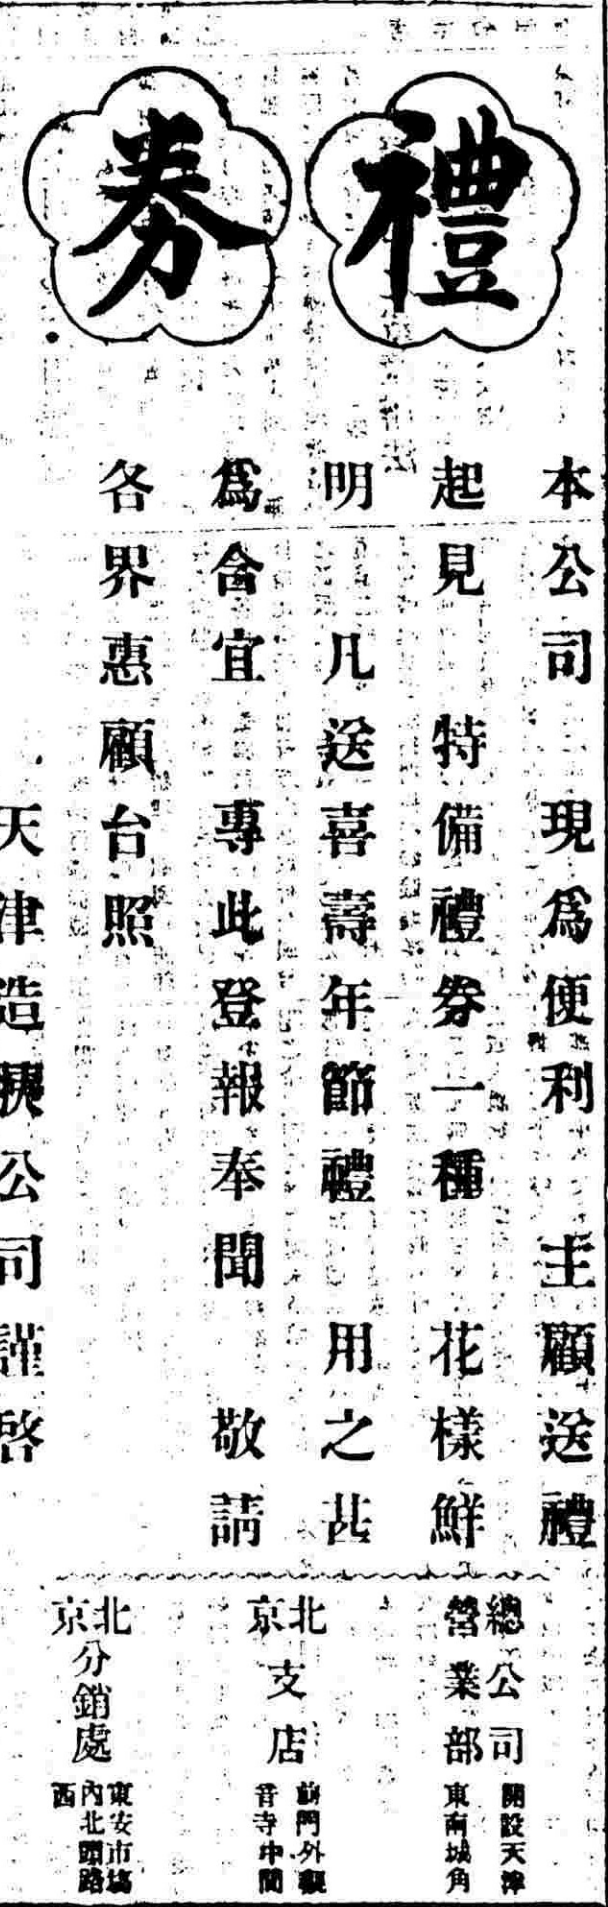 禮券
本公司 現爲便利 主顧送禮
起見 特備禮券一種 花樣鮮
明 凡送喜壽年節禮 用之甚
爲合宜 專此登報奉聞 敬請
各界惠顧台照
天津造胰公司謹啓
總公司
營業部
開設天津
東南城角
北京
支店
前門外觀
音寺中間
北京
分銷處
東安市場
內北頭路
西